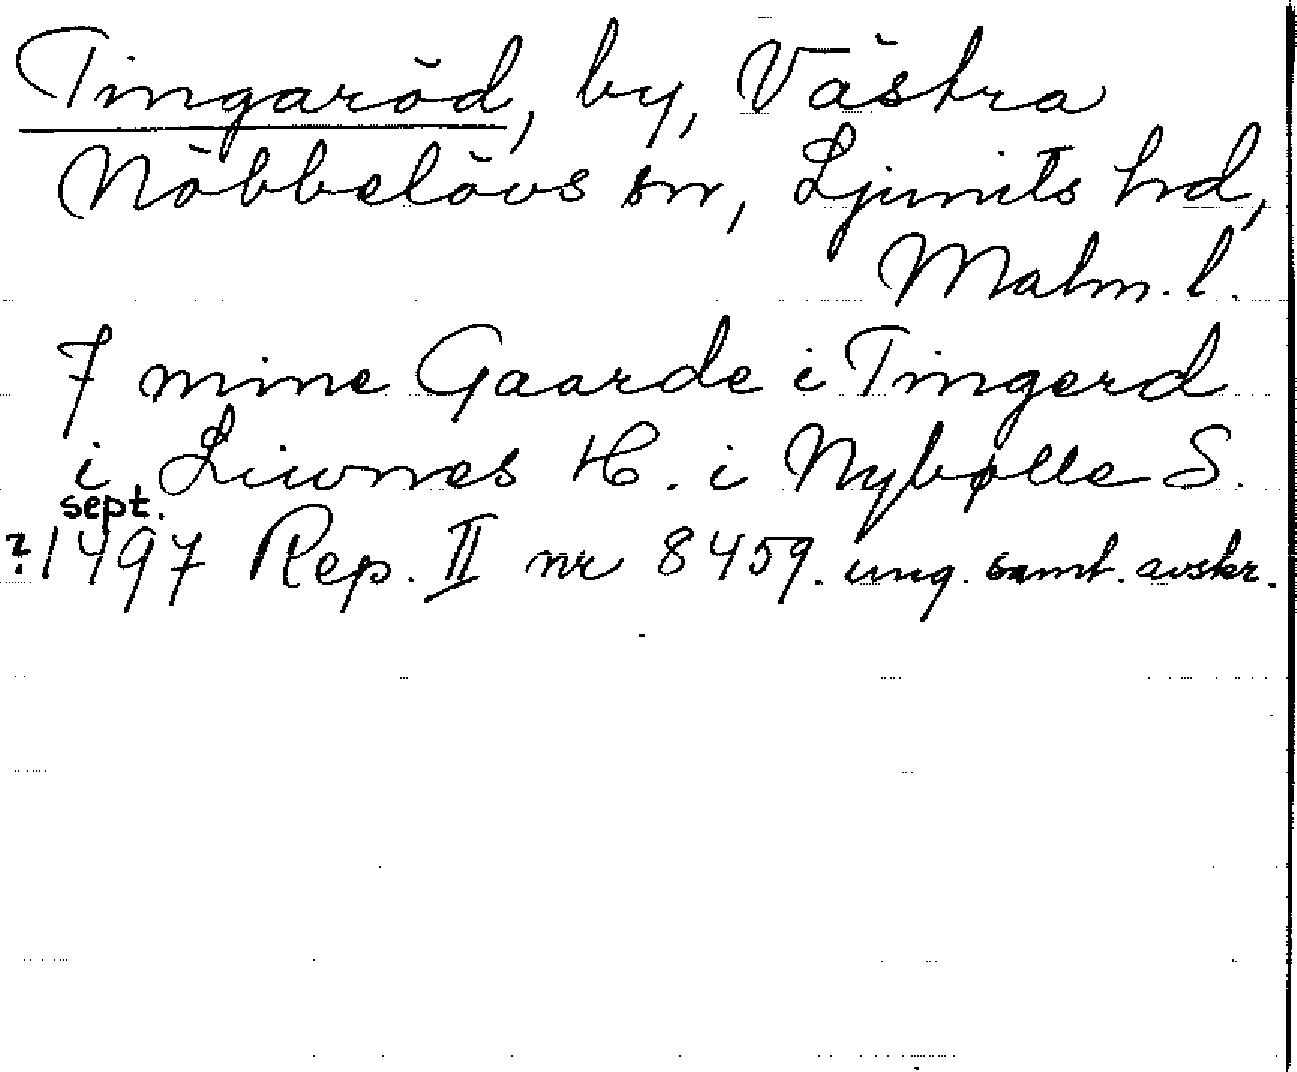 Tingaröd, by, Västra
Nöbbelövs sn, Ljunits hd,
Malm. l.
7 mine Gaarde i Tingerd
i Liwnes H. i Nybølle S.
sept.
?1497 Rep. II nr 8459. ung. samt. avskr.